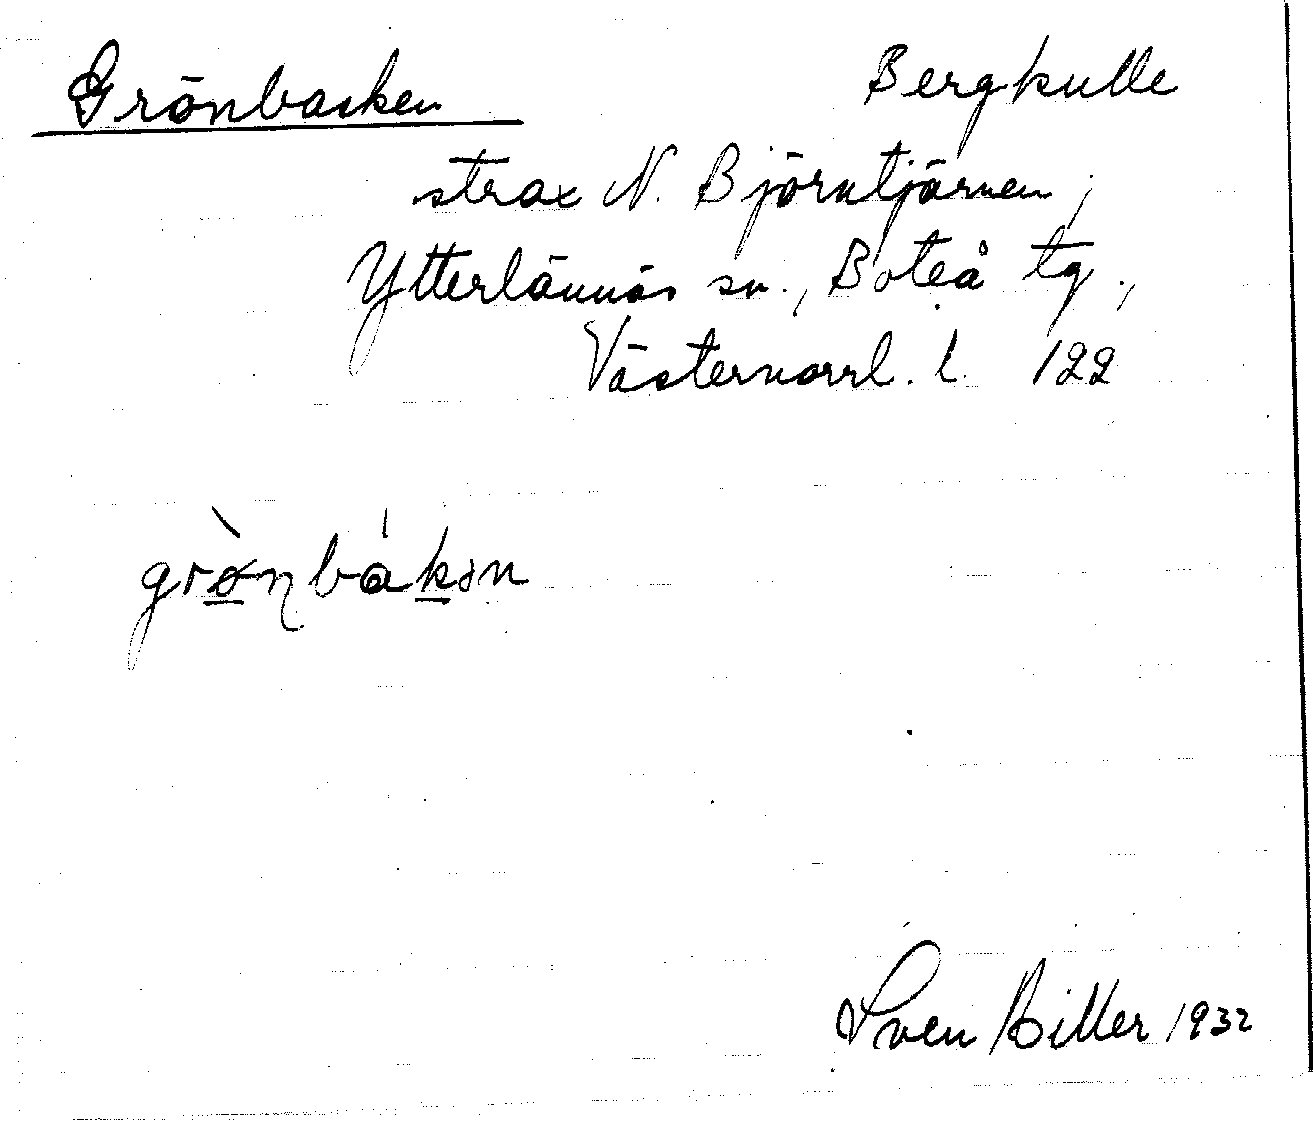 Grönbacken Bergkulle
strax N. Björntjärnen,
Ytterlännäs sn., Boteå tg.,
Västernorrl. l. 122
grø̀nbákən
Sven Biller 1932